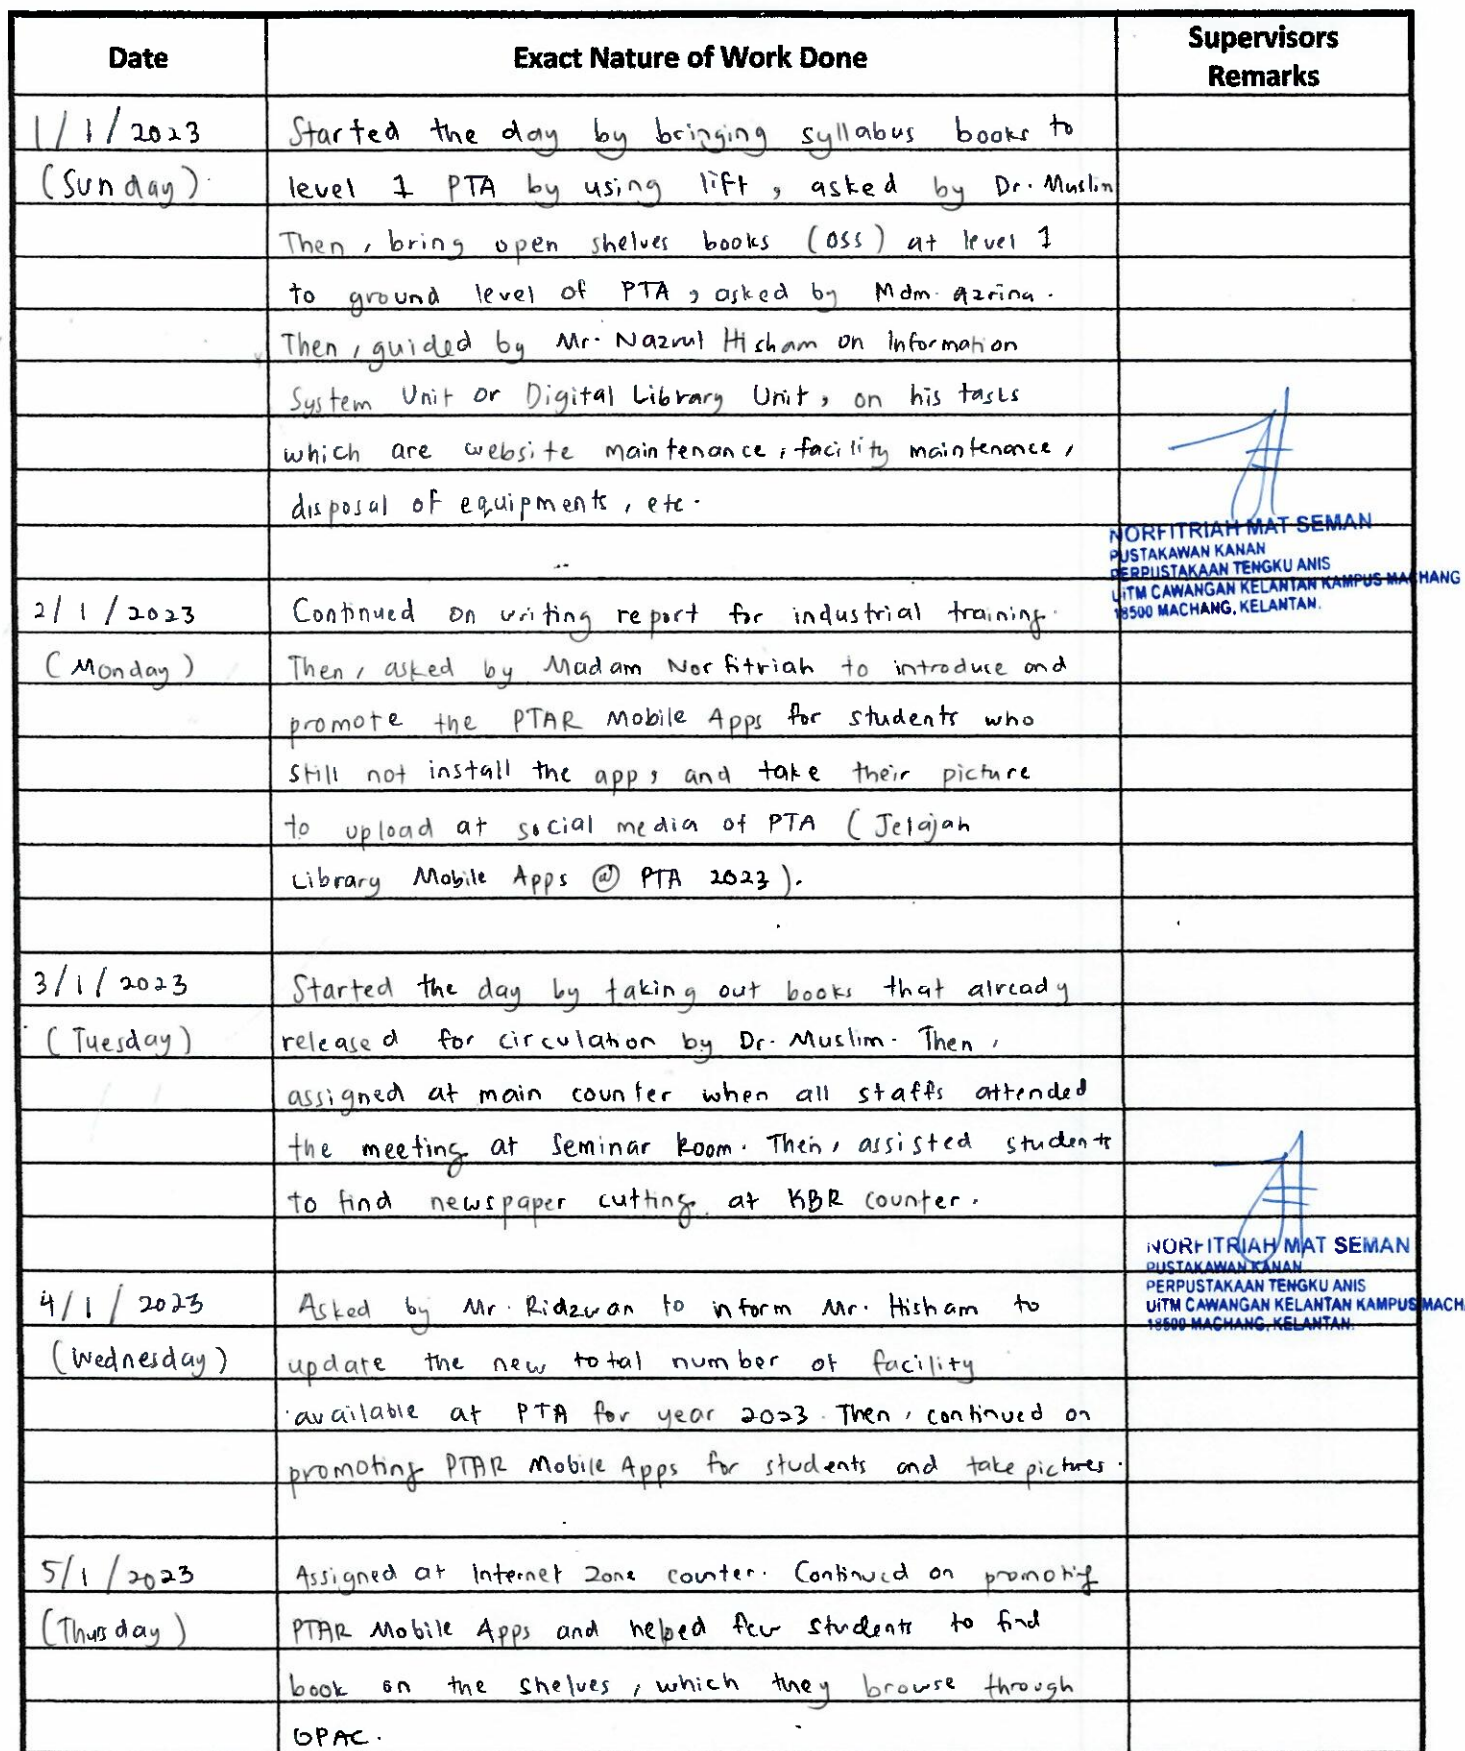 Date
Exact Nature of Work Done
Supervisors
Remarks
1/1/2023
Started the day by bringing syllabus books to
(Sunday)
level 1 PTA by using lift, asked by Dr. Muslim
Then, bring open shelves books (OSS) at level 1
to ground level of PTA, asked by Mdm. Azrina.
Then, guided by Mr. Nazrul Hisham on Information
System Unit or Digital Library Unit, on his tasks
which are website maintenance, facility maintenance,
disposal of equipments, etc.
NORFITRIAH MAT SEMAN
PUSTAKAWAN KANAN
PERPUSTAKAAN TENGKU ANIS
UiTM CAWANGAN KELANTAN KAMPUS MACHANG
18500 MACHANG, KELANTAN.
2/1/2023
Continued on writing report for industrial training.
(Monday)
Then, asked by Madam Norfitriah to introduce and
promote the PTAR Mobile Apps for students who
still not install the app, and take their picture
to upload at social media of PTA (Jelajah
Library Mobile Apps @ PTA 2023).
3/1/2023
Started the day by taking out books that already
(Tuesday)
released for circulation by Dr. Muslim. Then,
assigned at main counter when all staffs attended
the meeting at Seminar Room. Then, assisted students
to find newspaper cutting at KBR counter.
NORFITRIAH MAT SEMAN
PUSTAKAWAN KANAN
PERPUSTAKAAN TENGKU ANIS
UiTM CAWANGAN KELANTAN KAMPUS MACH
18500 MACHANG, KELANTAN.
4/1/2023
Asked by Mr. Ridzwan to inform Mr. Hisham to
(Wednesday)
update the new total number of facility
available at PTA for year 2023. Then, continued on
promoting PTAR Mobile Apps for students and take pictures.
5/1/2023
Assigned at Internet Zone counter. Continued on promoting
(Thursday)
PTAR Mobile Apps and helped few students to find
book on the shelves, which they browse through
OPAC.